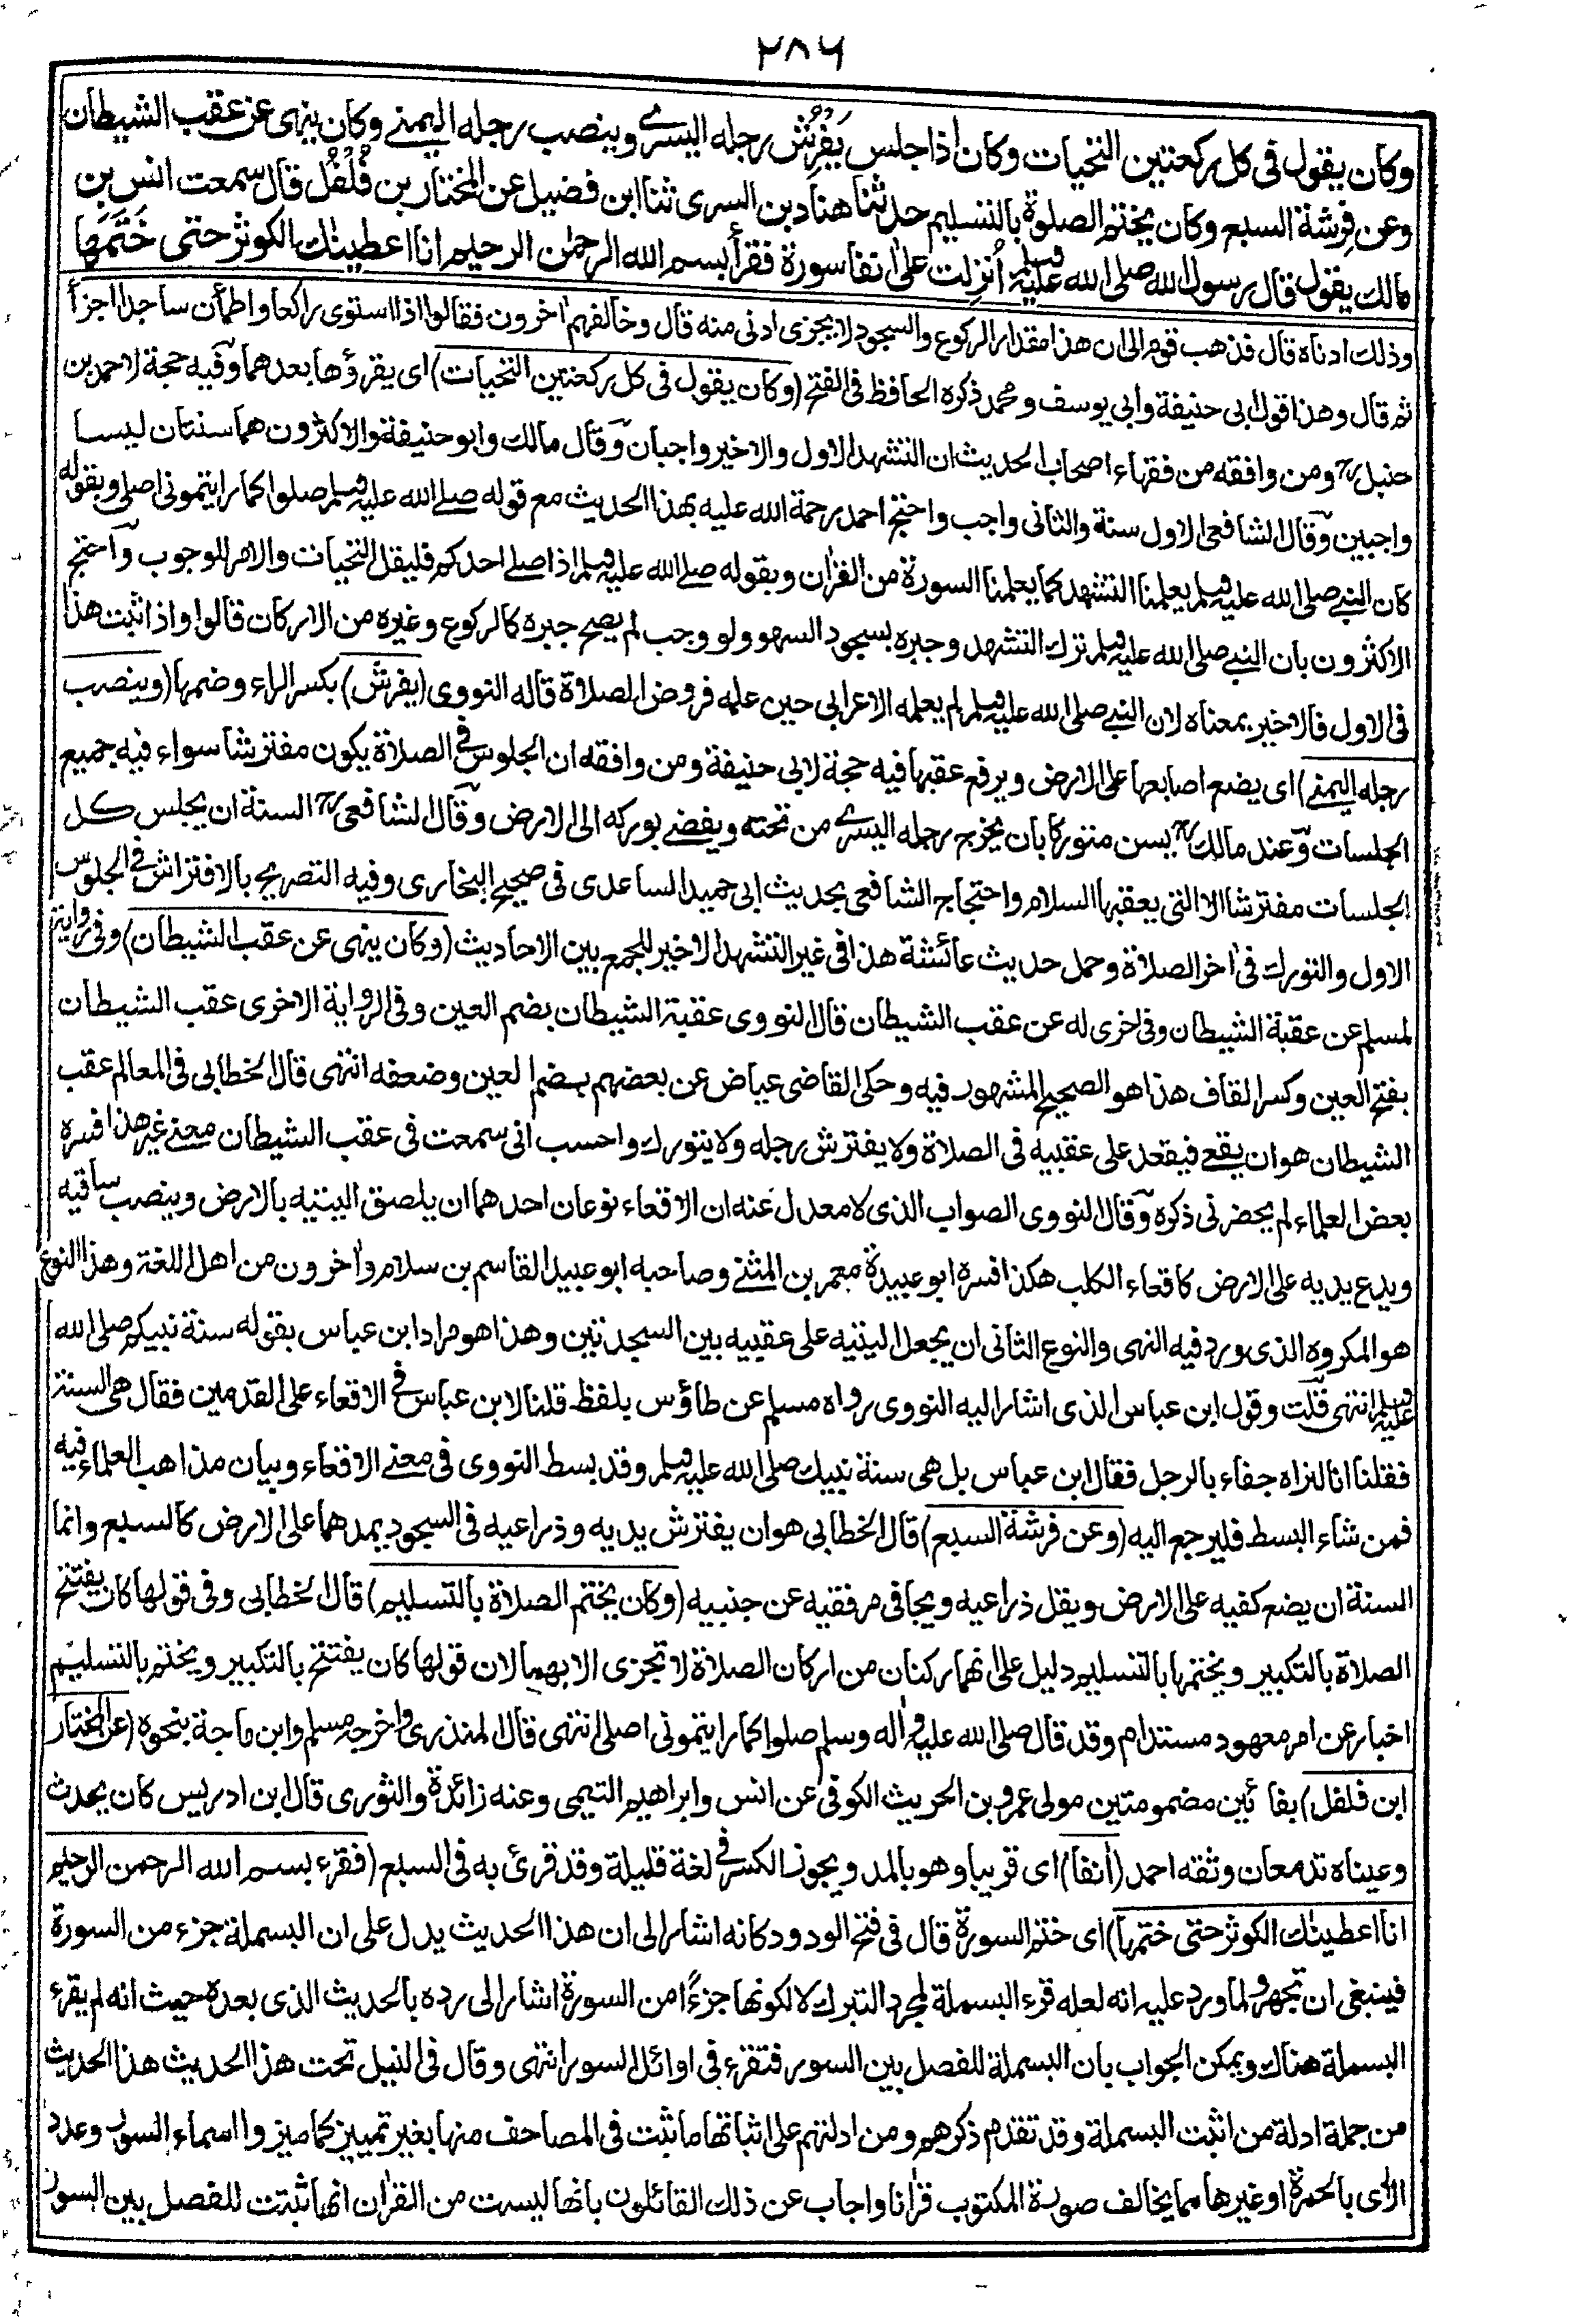 ٢٨٦
وكان يقول فى كل ركعتين التحيات وكان اذا جلس يَفْرِشُ رجله اليسرے وينصب رجله اليمنے وكان ينهى عن عقب الشيطان
وعن فِرشة السبع وكان يختم الصلوة بالتسليم حدثنا هناد بن السرى ثنا ابن فضيل عن المختار بن فُلْفُل قال سمعت انس بن
مالك يقول قال رسول الله صلى الله عليه وسلم اُنزِلت على اٰنفا سورة فقرأ بسم الله الرحمٰن الرحيم انا اعطينٰك الكوثر حتى خَتَمَها
وذلك ادناه قال فذهب قوم الى ان هذا مقدار الركوع والسجود لا يجزى ادنى منه قال وخالفهم اٰخرون فقالوا اذا استوى راكعا واطمأن ساجدا اجزأ
ثم قال وهذا قول ابى حنيفة وابي يوسف ومحمد ذكره الحافظ فى الفتح (وكان يقول فى كل ركعتين التحيات) اى يقرؤها بعدهما وفيه حجة لاحمد بن
حنبل رح ومن وافقه من فقهاء اصحاب الحديث ان التشهد الاول والاخير واجبان وقال مالك وابو حنيفة والاكثرون هما سنتان ليسا
واجبين وقال الشافعى الاول سنة والثانى واجب واحتج احمد رحمة الله عليه بهذا الحديث مع قوله صلے الله عليه وسلم صلوا كما رايتمونى اصلى وبقوله
كان النبے صلى الله عليه وسلم يعلمنا التشهد كما يعلمنا السورة من القراٰن وبقوله صلے الله عليه وسلم اذا صلے احدكم فليقل التحيات والامر للوجوب واحتج
الاكثرون بان النبے صلى الله عليه وسلم ترك التشهد وجبره بسجود السهو ولو وجب لم يصح جبره كالركوع وغيره من الاركان قالوا واذا ثبت هذا
فى الاول فالاخير بمعناه لان النبے صلى الله عليه وسلم لم يعلمه الاعرابى حين علمه فروض الصلاة قاله النووى (يفرش) بكسر الراء وضمها (وينصب
رجله اليمنے) اى يضع اصابعها على الارض ويرفع عقبها فيه حجة لابى حنيفة ومن وافقه ان الجلوس فى الصلاة يكون مفترشا سواء فيه جميع
الجلسات وعند مالك رح يسن متوركا بان يخرج رجله اليسرے من تحته ويفضے بوركه الى الارض وقال الشافعى رح السنة ان يجلس كل
الجلسات مفترشا الا التى يعقبها السلام واحتجاج الشافعى بحديث ابى حميد الساعدى فى صحيح البخارى وفيه التصريح بالافتراش فى الجلوس
الاول والتورك فى اٰخر الصلاة وحمل حديث عائشة هذا فى غير التشهد الاخير للجمع بين الاحاديث (وكان ينهى عن عقب الشيطان) وفى رواية
لمسلم عن عقبة الشيطان وفى اخرى له عن عقب الشيطان قال النووى عقبة الشيطان بضم العين وفى الرواية الاخرى عقب الشيطان
بفتح العين وكسر القاف هذا هو الصحيح المشهور فيه وحكى القاضى عياض عن بعضهم بضم العين وضعفه انتهى قال الخطابى فى المعالم عقب
الشيطان هو ان يقعے فيقعد على عقبيه فى الصلاة ولا يفترش رجله ولا يتورك واحسب انى سمعت فى عقب الشيطان معنے غير هذا فسره
بعض العلماء لم يحضرنى ذكره وقال النووى الصواب الذى لا معدل عنه ان الاقعاء نوعان احدهما ان يلصق اليتيه بالارض وينصب ساقيه
ويدع يديه على الارض كاقعاء الكلب هكذا فسره ابو عبيدة معمر بن المثنے وصاحبه ابو عبيد القاسم بن سلام واٰخرون من اهل اللغة وهذا النوع
هو المكروه الذى ورد فيه النهى والنوع الثانى ان يجعل اليتيه على عقبيه بين السجدتين وهذا هو مراد ابن عباس بقوله سنة نبيكم صلى الله
عليه وسلم انتهى قلت وقول ابن عباس الذى اشار اليه النووى رواه مسلم عن طاؤس بلفظ قلنا لابن عباس فى الاقعاء على القدمين فقال هى السنة
فقلنا انا لنراه جفاء بالرجل فقال ابن عباس بل هى سنة نبيك صلى الله عليه وسلم وقد بسط النووى فى معنے الاقعاء وبيان مذاهب العلماء فيه
فمن شاء البسط فليرجع اليه (وعن فرشة السبع) قال الخطابى هو ان يفترش يديه وذراعيه فى السجود يمدهما على الارض كالسبع وانما
السنة ان يضع كفيه على الارض ويقل ذراعيه ويجافى مرفقيه عن جنبيه (وكان يختم الصلاة بالتسليم) قال الخطابى وفى قولها كان يفتتح
الصلاة بالتكبير ويختمها بالتسليم دليل على انهما ركنان من اركان الصلاة لا تجزى الا بهما لان قولها كان يفتتح بالتكبير ويختم بالتسليم
اخبار عن امر معهود مستدام وقد قال صلى الله عليه واٰله وسلم صلوا كما رايتمونى اصلى انتهى قال المنذرى واخرجه مسلم وابن ماجة بنحوه (عن المختار
ابن فلفل) بفائين مضمومتين مولى عمرو بن الحريث الكوفى عن انس وابراهيم التيمى وعنه زائدة والثورى قال ابن ادريس كان يحدث
وعيناه تدمعان وثقه احمد (اٰنفا) اى قريبا وهو بالمد ويجوز الكسر فى لغة قليلة وقد قرئ به فى السبع (فقرء بسم الله الرحمن الرحيم
انا اعطينٰك الكوثر حتى ختمها) اى ختم السورة قال فى فتح الودود كانه اشار الى ان هذا الحديث يدل على ان البسملة جزء من السورة
فينبغى ان تجهر ولما ورد عليه انه لعله قرء البسملة لمجرد التبرك لا لكونها جزءًا من السورة اشار الى رده بالحديث الذى بعده حيث انه لم يقرء
البسملة هناك ويمكن الجواب بان البسملة للفصل بين السور فتقرء فى اوائل السور انتهى وقال فى النيل تحت هذا الحديث هذا الحديث
من جملة ادلة من اثبت البسملة وقد تقدم ذكرهم ومن ادلتهم على اثباتها ما ثبت فى المصاحف منها بغير تمييز كما ميزوا اسماء السور وعدد
الاٰى بالحمرة او غيرها مما يخالف صورة المكتوب قراٰنا واجاب عن ذلك القائلون بانها ليست من القراٰن انها ثبتت للفصل بين السور